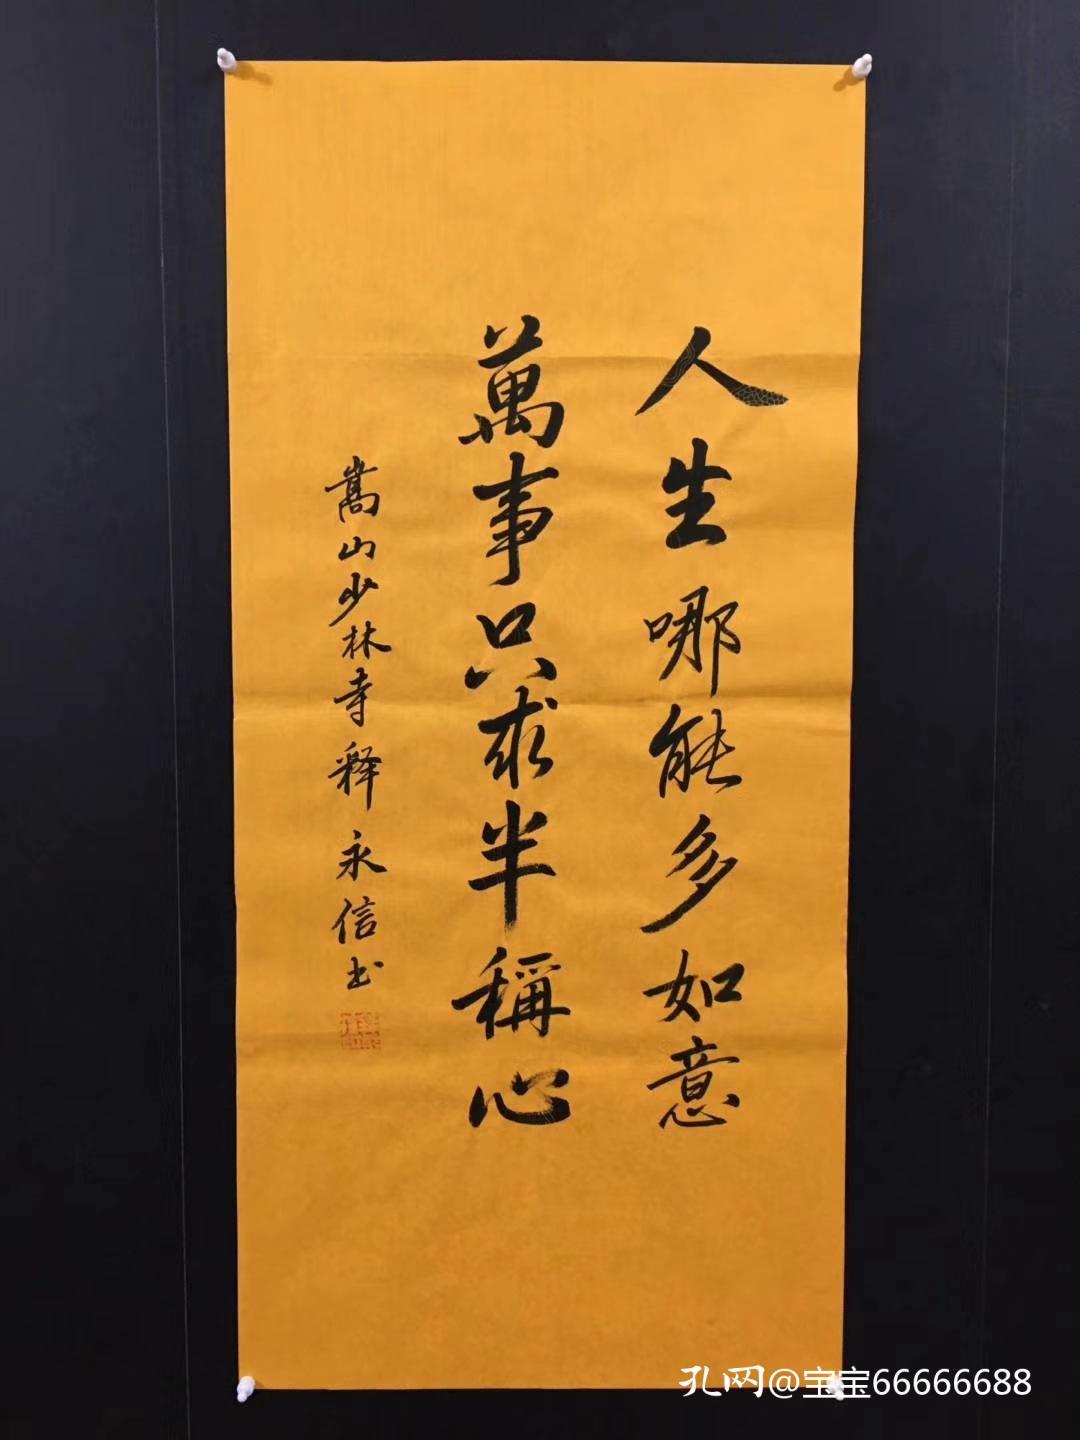 人生哪能多如意
萬事只求半稱心
嵩山少林寺释永信书
孔网@宝宝66666688